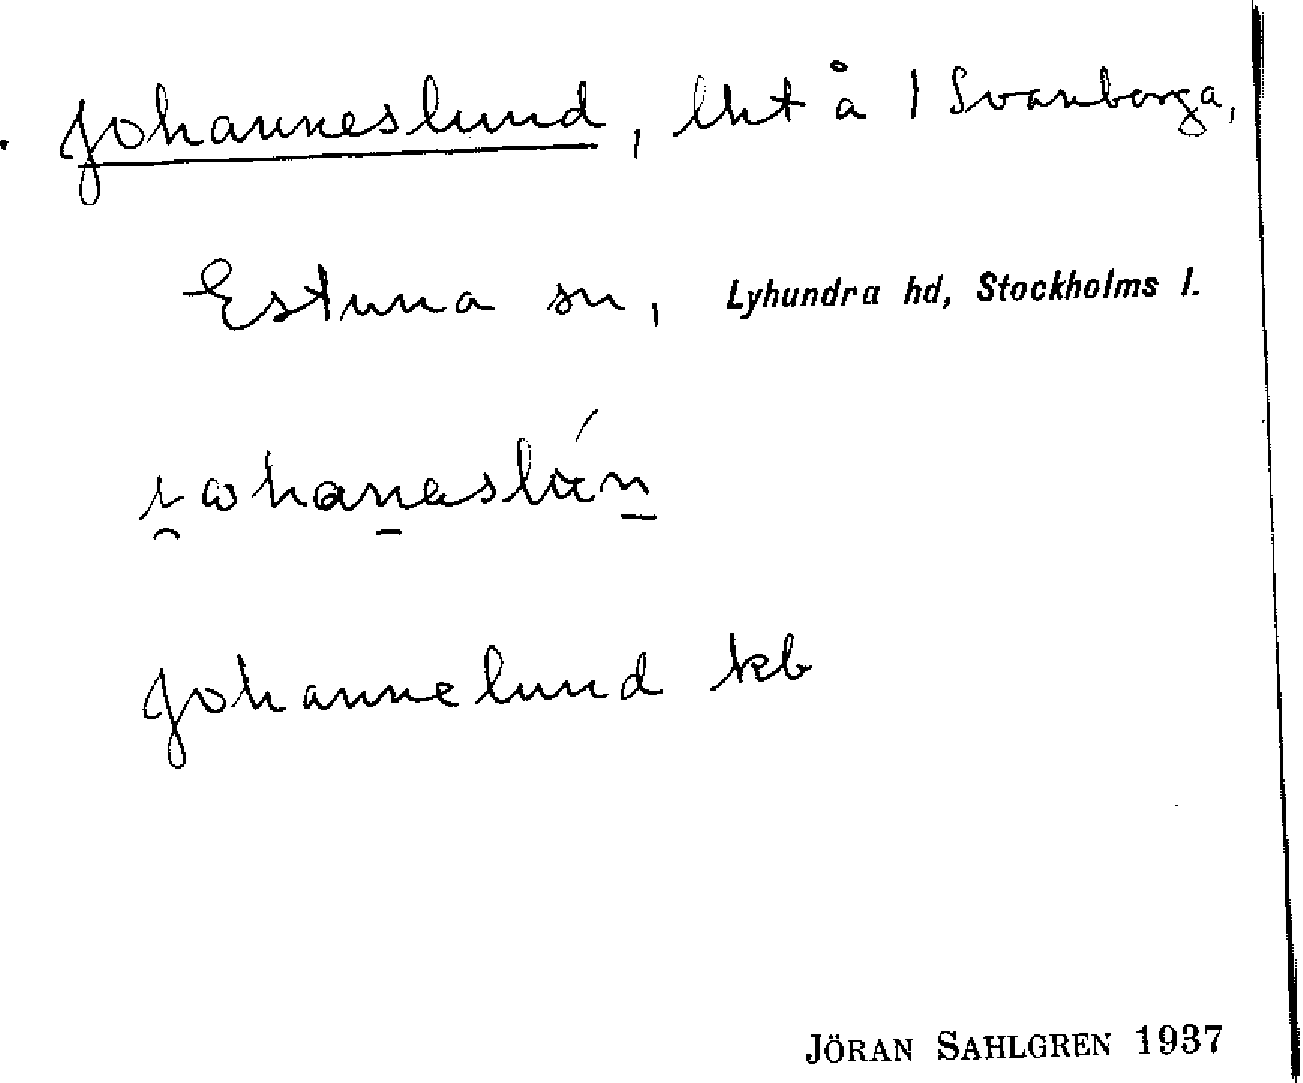 Johanneslund, lht å 1 Svanberga,
Estuna sn, Lyhundra hd, Stockholms l.
Johannelund kb
JÖRAN SAHLGREN 1937